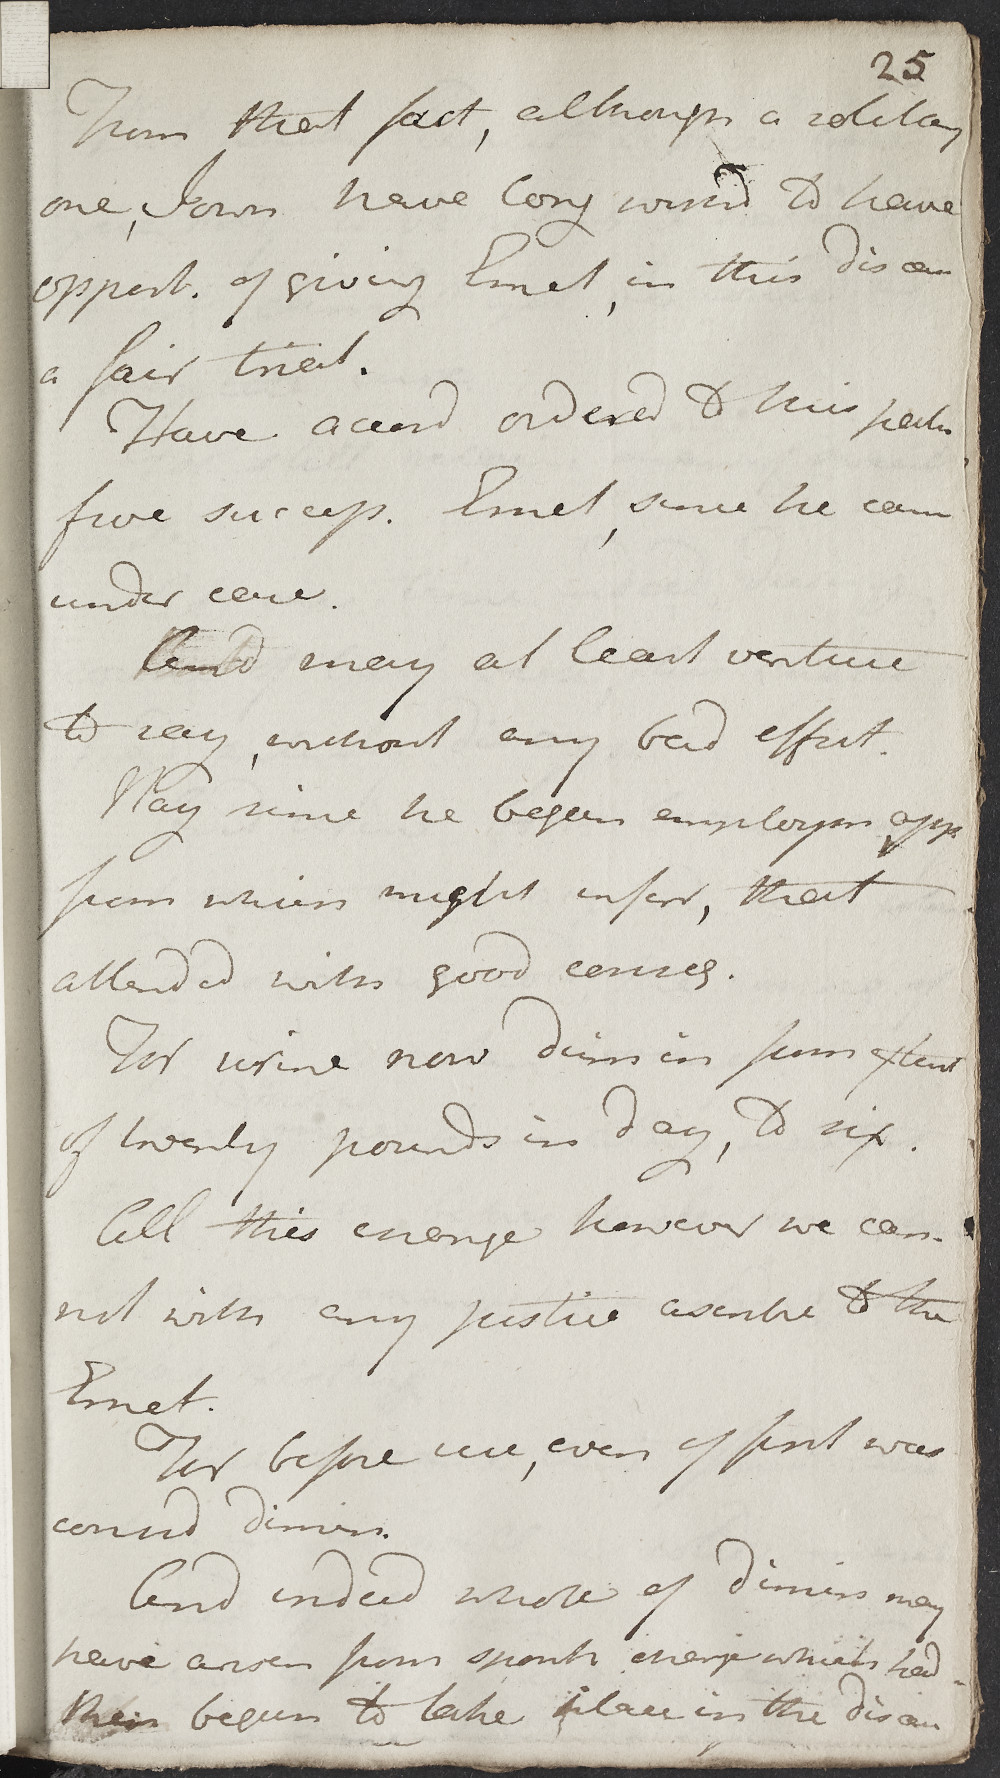 25
From that fact, although a solitary
one, I own have long wishd to have
opport. of giving Emet, in this disease
a fair trial.
Have accord ordered to this patn
five success. Emet, since he came
under care.
And may at least venture
to say, without any bad effect.
Nay since he began employm app.
from which might infer, that
attended with good conseq.
For urine now dimin from extent
of twenty pounds in day, to six.
All this change however we can-
not with any justice ascribe to the
Emet.
For before use, even of first was
consid dimin.
And indeed whole of dimin may
have arisen from spont. change which had
then begun to take place in the disease